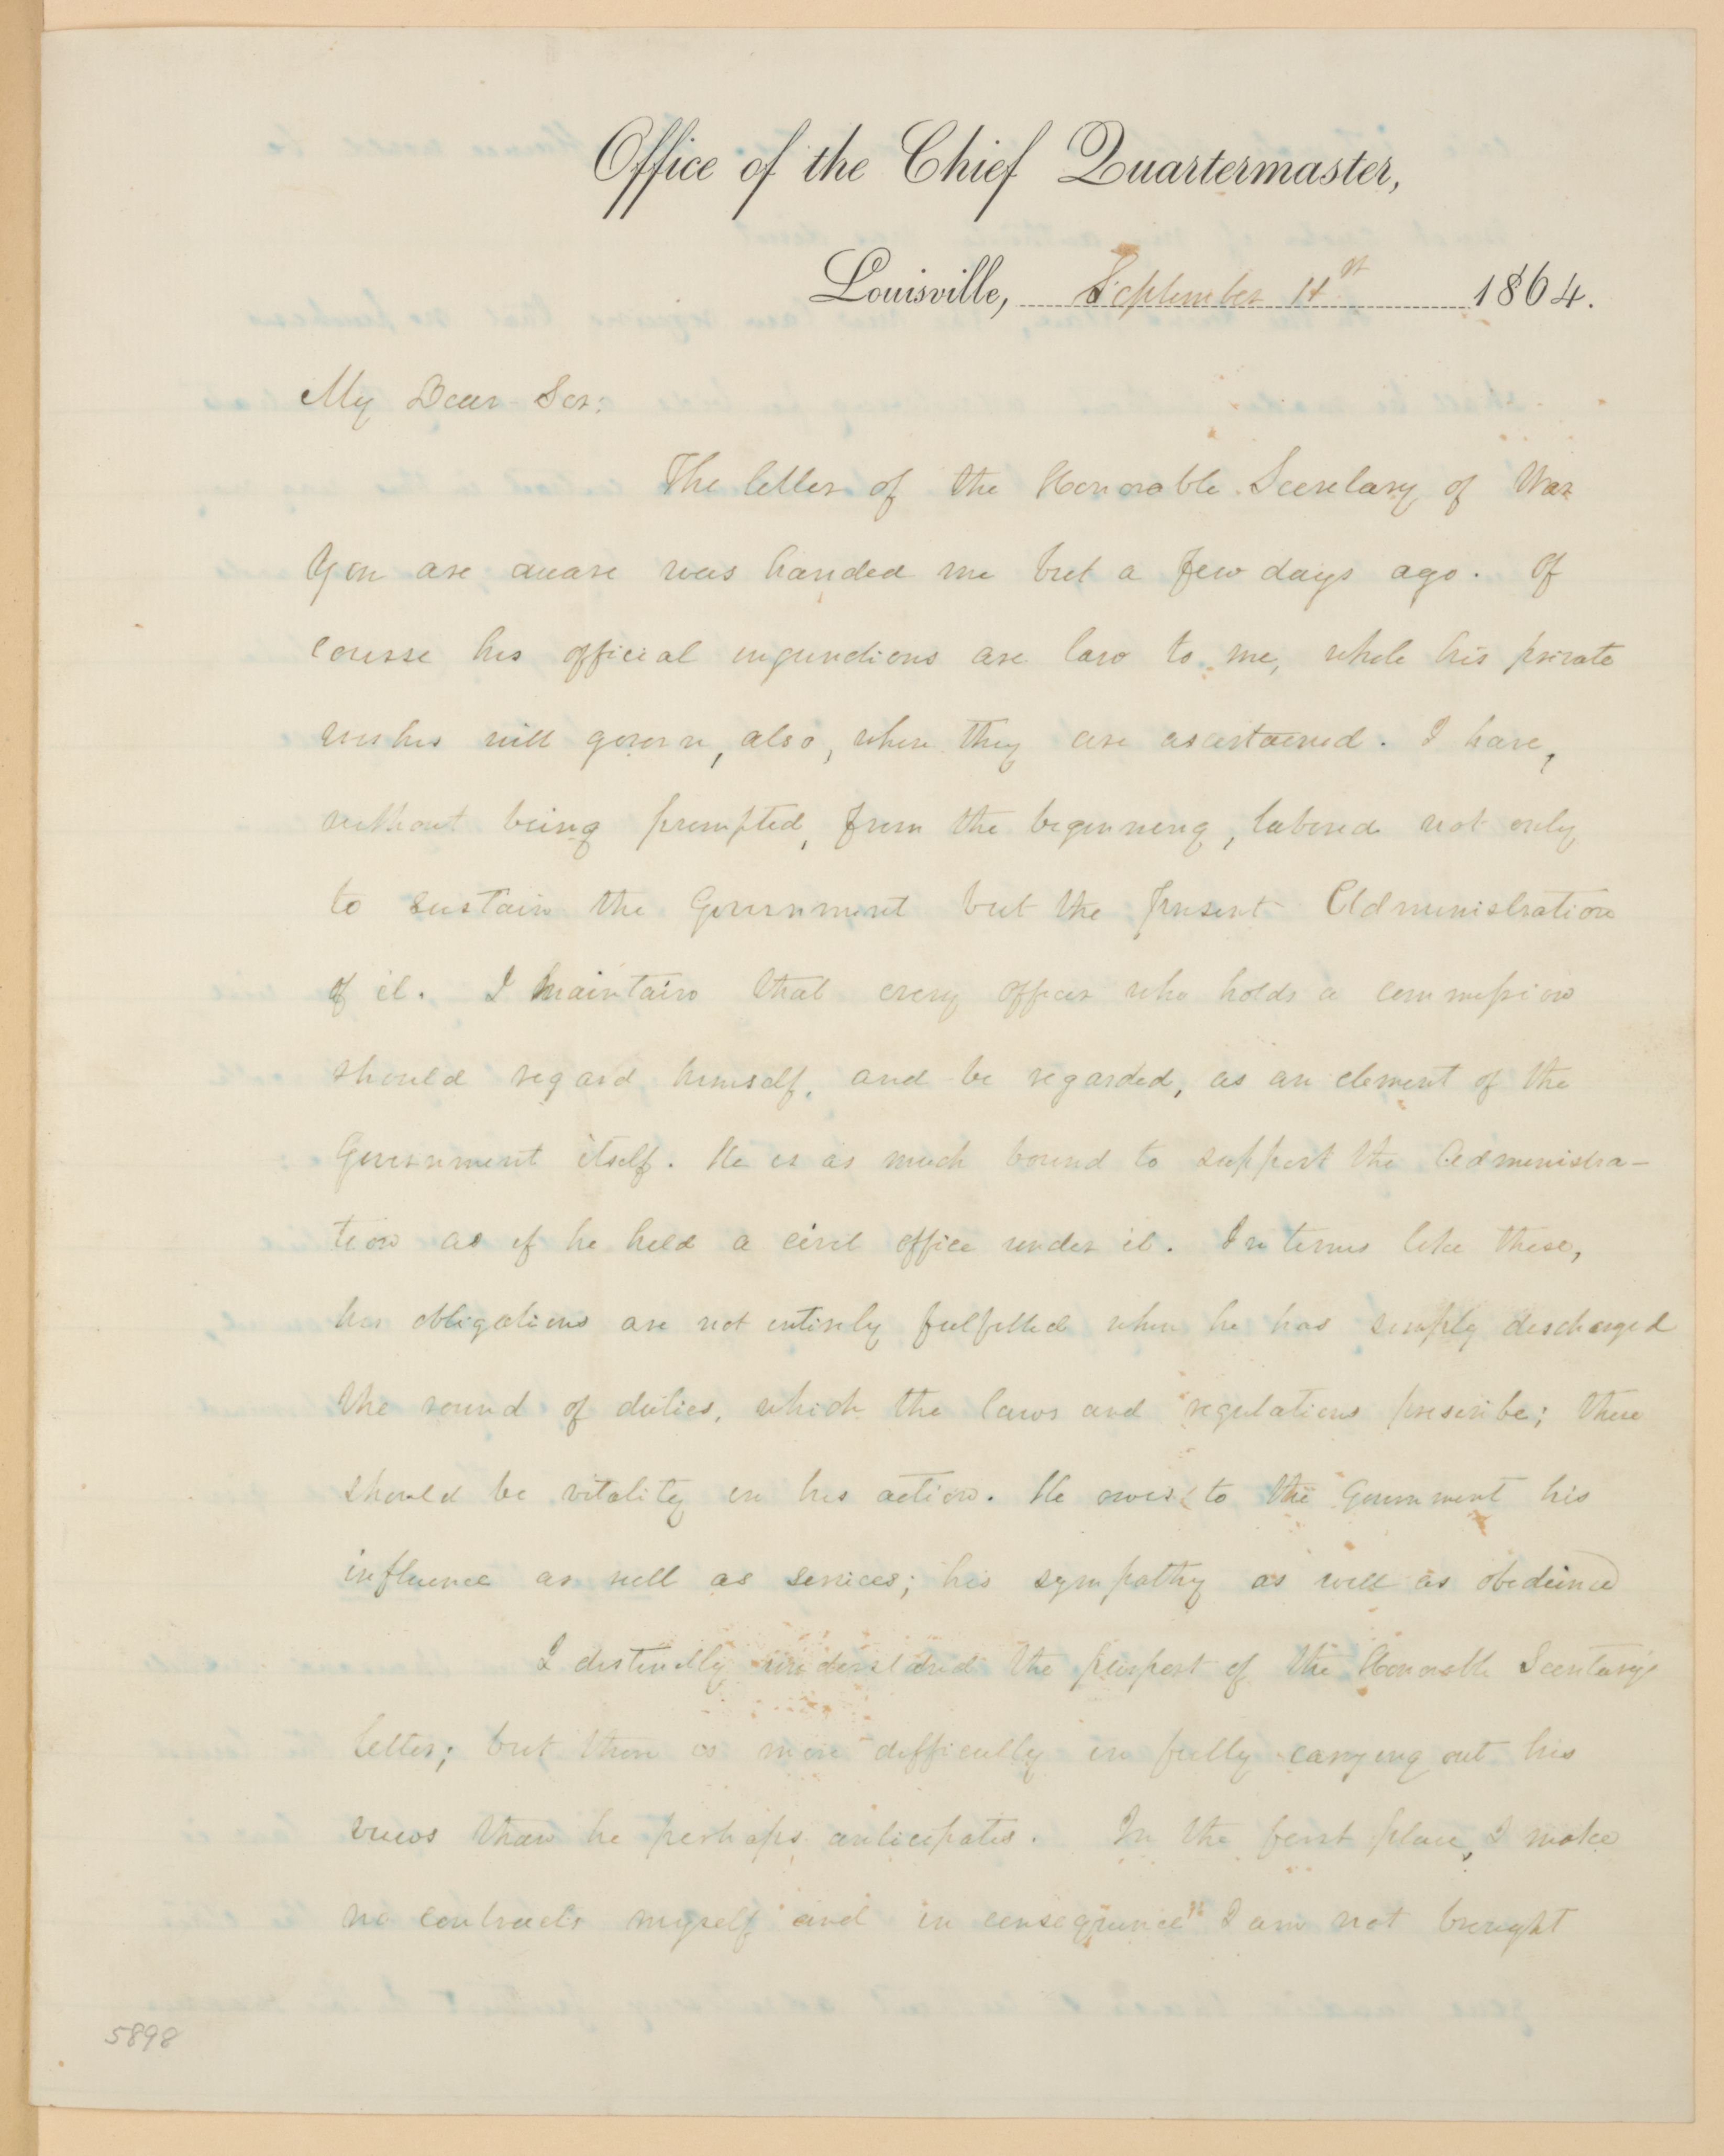 Office of the Chief Quartermaster,
Louisville, September 11st 1864.
My Dear Sir:
The letter of the Honorable Secretary of War
you are aware was handed me but a few days ago. Of
course his official injunctions are law to me, while his private
wishes will govern, also, when they are ascertained. I have,
without being prompted, from the beginning, labored not only
to sustain the Government but the present Administration
of it. I maintain that every officer who holds a commission
should regard himself, and be regarded, as an element of the
Government itself. He is as much bound to support the Administra-
tion as if he held a civil office under it. In times like these,
his obligations are not entirely fulfilled when he has simply discharged
the round of duties, which the laws and regulations prescribe; there
should be vitality in his action. He owes to the Government his
influence as well as services; his sympathy as well as obedience
I distinctly understand the purport of the Honorable Secretary's
letter; but there is more difficulty in fully carrying out his
views than he perhaps anticipates. In the first place, I make
no contracts myself and in consequence I am not brought
5898